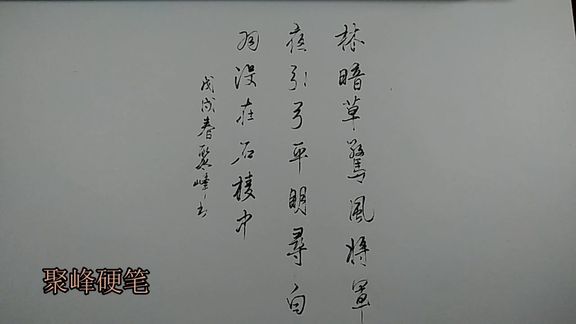 林暗草驚風將軍
夜引弓平明尋白
羽没在石棱中
戊戌春聚峰书
聚峰硬笔